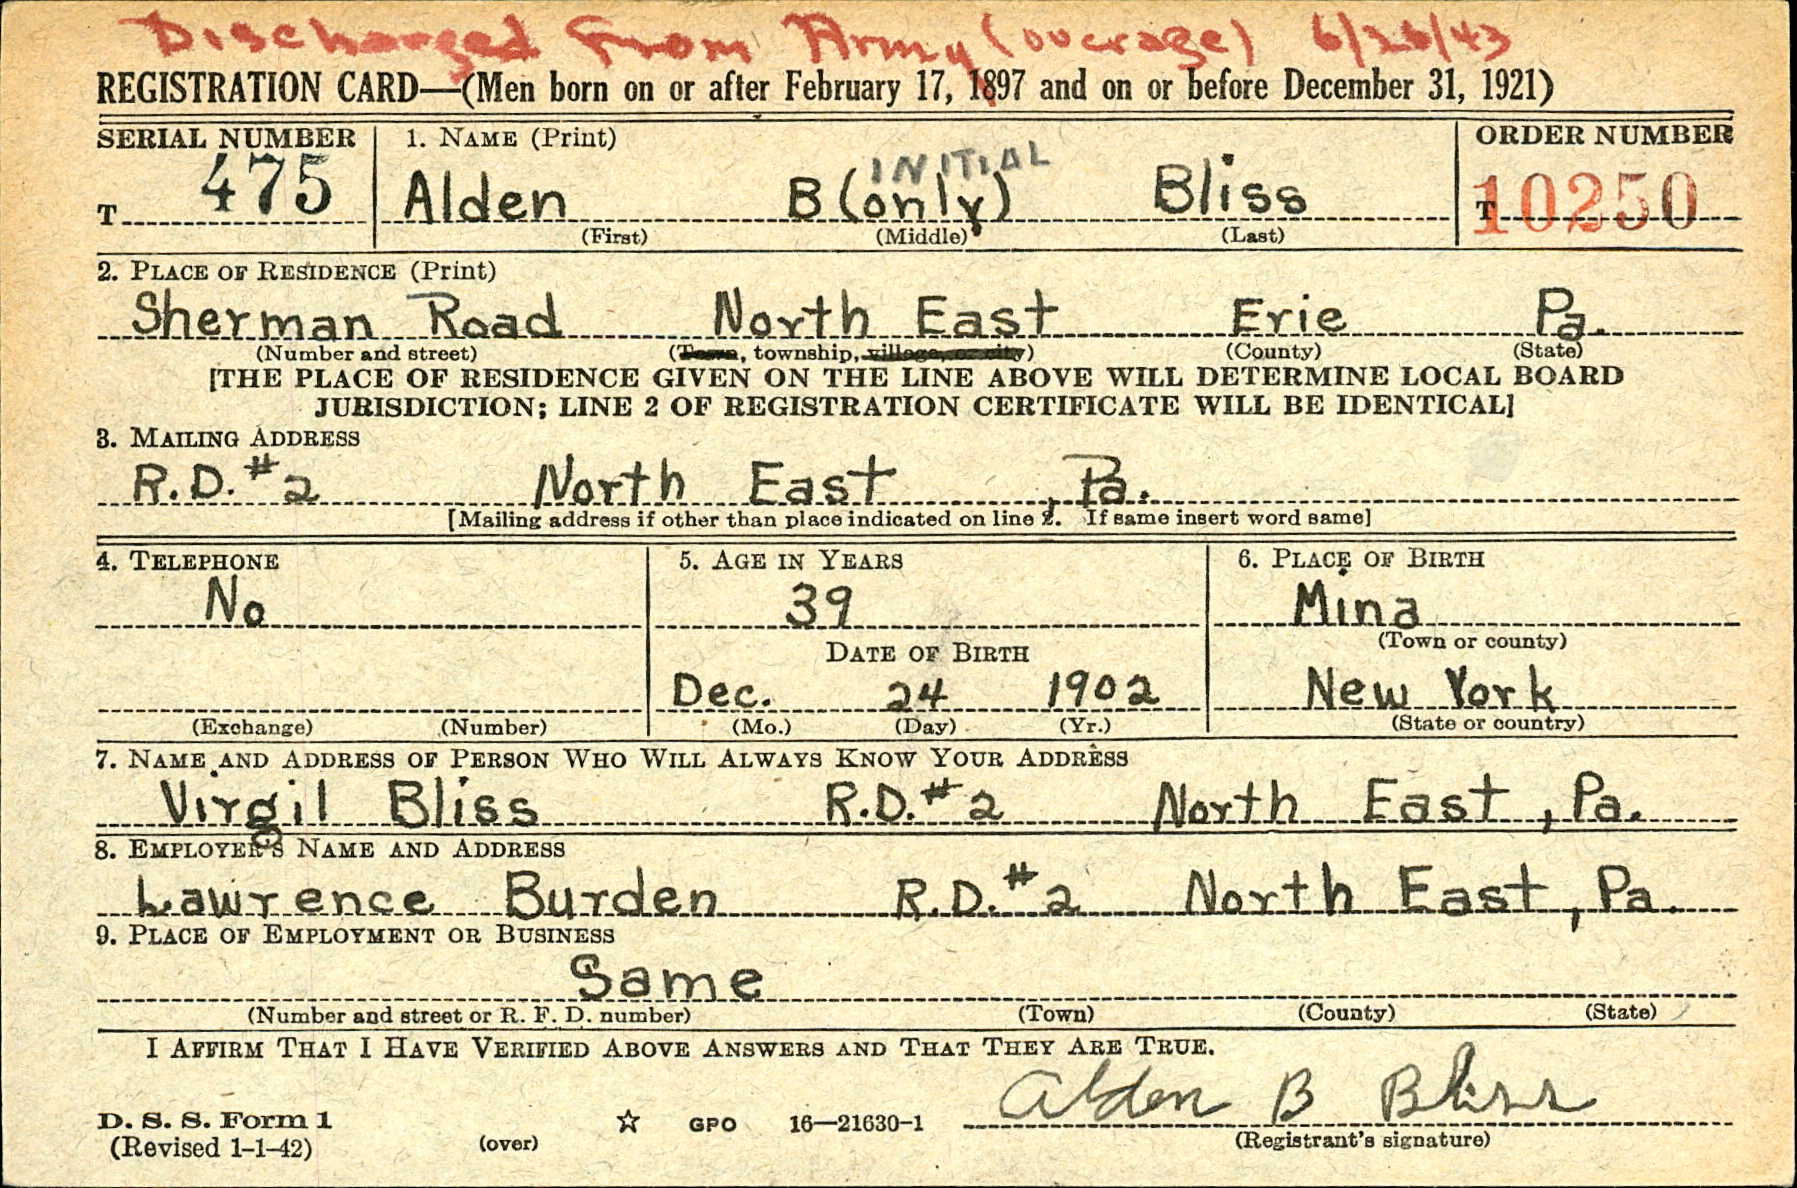 Discharged From Army (overage) 6/26/43
REGISTRATION CARD—(Men born on or after February 17, 1897 and on or before December 31, 1921)
SERIAL NUMBER 1. NAME (Print) ORDER NUMBER
INITIAL
T 475 Alden B (only) Bliss T 10250
(First) (Middle) (Last)
2. PLACE OF RESIDENCE (Print)
Sherman Road North East Erie Pa.
(Number and street) (Town, township, village, or city) (County) (State)
[THE PLACE OF RESIDENCE GIVEN ON THE LINE ABOVE WILL DETERMINE LOCAL BOARD
JURISDICTION; LINE 2 OF REGISTRATION CERTIFICATE WILL BE IDENTICAL]
3. MAILING ADDRESS
R.D. #2 North East, Pa.
[Mailing address if other than place indicated on line 2. If same insert word same]
4. TELEPHONE 5. AGE IN YEARS 6. PLACE OF BIRTH
No 39 Mina
DATE OF BIRTH (Town or county)
Dec. 24 1902 New York
(Exchange) (Number) (Mo.) (Day) (Yr.) (State or country)
7. NAME AND ADDRESS OF PERSON WHO WILL ALWAYS KNOW YOUR ADDRESS
Virgil Bliss R.D. #2 North East, Pa.
8. EMPLOYER'S NAME AND ADDRESS
Lawrence Burden R.D. #2 North East, Pa.
9. PLACE OF EMPLOYMENT OR BUSINESS
Same
(Number and street or R. F. D. number) (Town) (County) (State)
I AFFIRM THAT I HAVE VERIFIED ABOVE ANSWERS AND THAT THEY ARE TRUE.
Alden B Bliss
D. S. S. Form 1 ☆ GPO 16—21630-1
(Revised 1-1-42) (over) (Registrant's signature)